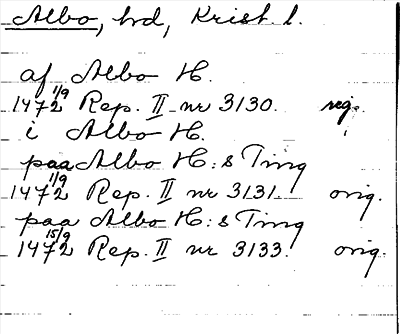 Albo, hd, Krist. l.
af Albo H.
1472 1/9 Rep. II nr 3130. reg.
i Albo H.
paa Albo H:s Ting
1472 1/9 Rep. II nr 3131. orig.
paa Albo H:s Ting
1472 15/9 Rep. II nr 3133. orig.